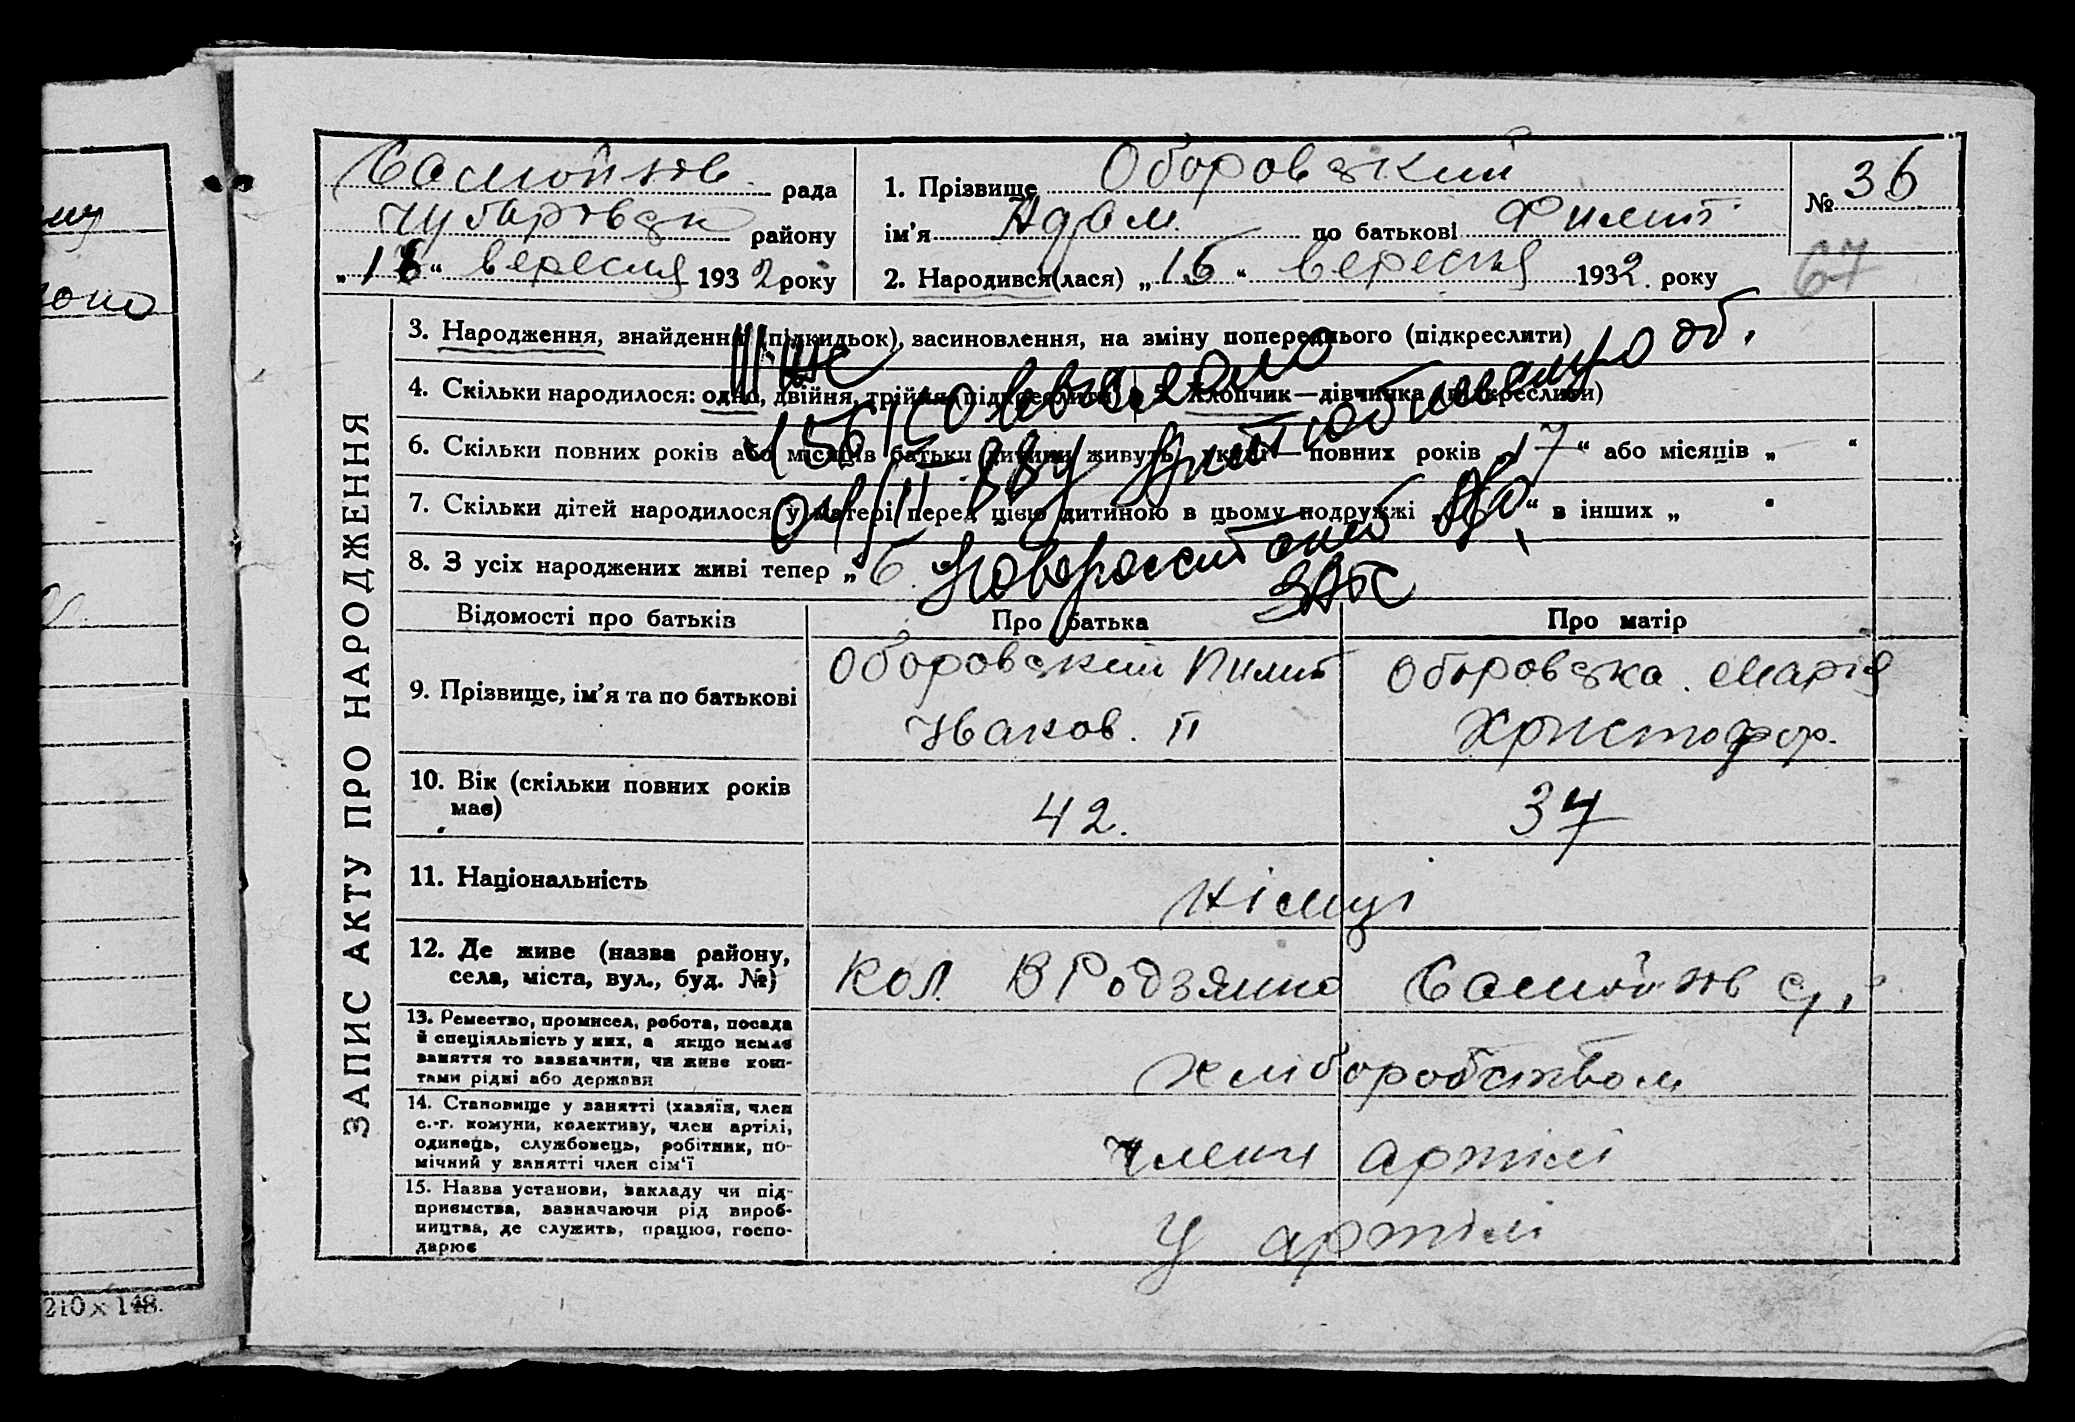 ону
ЗАПИС АКТУ ПРО НАРОДЖЕННЯ
Самойлів рада
Чубарівськ району
„18“ вересня 1932 року
1. Прізвище Оборовський
ім'я Адам по батькові Филип.
2. Народився(лася) „15“ вересня 1932 року
№ 36
67
3. Народження, знайдення (підкидьок), засиновлення, на зміну попереднього (підкреслити)
4. Скільки народилося: одно, двійня, трійня (підкреслити) 5. Хлопчик—дівчинка (підкреслити)
6. Скільки повних років або місяців батьки дитини живуть укупі — повних років „17“ або місяців „ “
7. Скільки дітей народилося у матері перед цією дитиною в цьому подружжі “ в інших „
8. З усіх народжених живі тепер „6
ЗАГС
Відомості про батьків Про батька Про матір
9. Прізвище, ім'я та по батькові
Оборовський Пилип
Иванов. П
Оборовська Марія
Христофор.
10. Вік (скільки повних років має) 42. 37
11. Національність Німці
12. Де живе (назва району,
села, міста, вул., буд. №)
Кол. В Родзянко Самойлів с/р
13. Ремество, промисел, робота, посада
й спеціяльність у них, а якщо немає
заняття то зазначити, чи живе кош-
тами рідні або держави
Хліборобством
14. Становище у занятті (хазяїн, член
с.-г. комуни, колективу, член артілі,
одинець, службовець, робітник, по-
мічний у занятті член сім'ї
члени артілі
15. Назва установи, закладу чи під-
приємства, зазначаючи рід вироб-
ництва, де служить, працює, госпо-
дарює
У артілі
210 × 148.